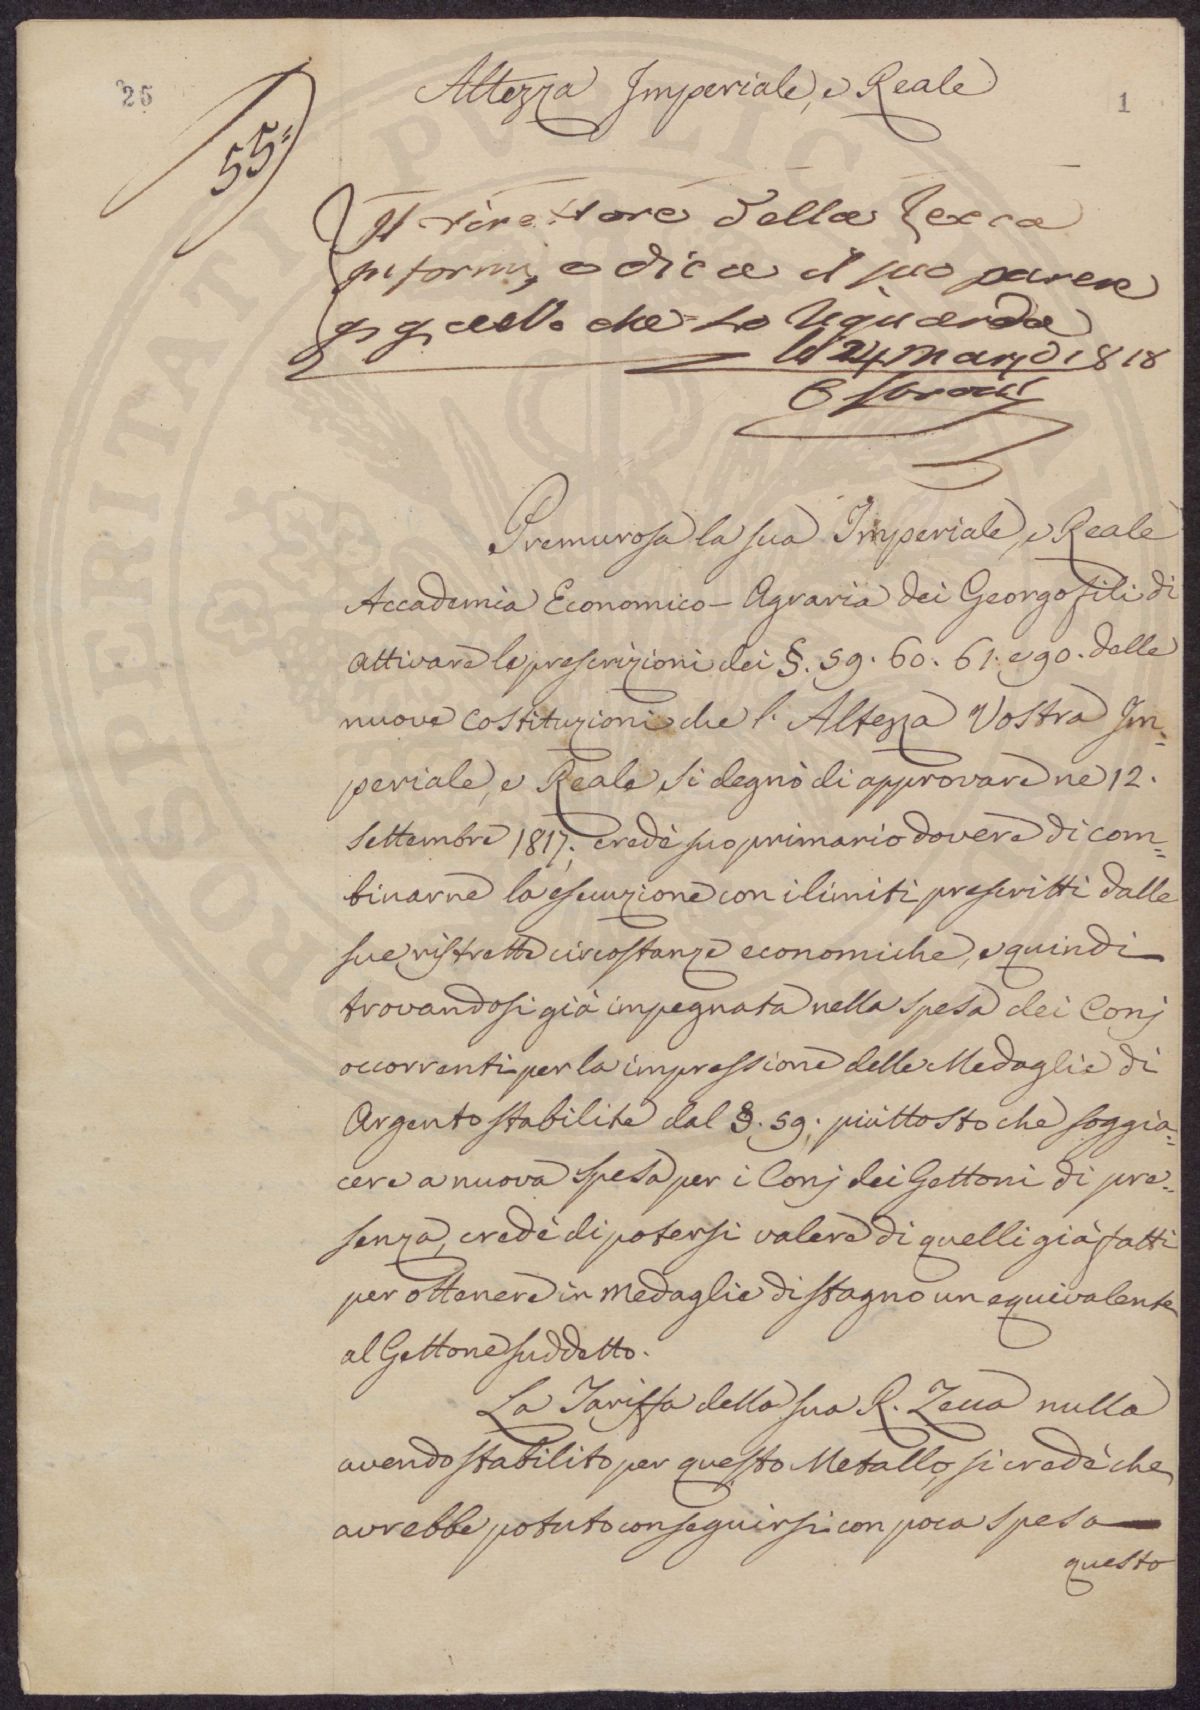 25
1
55.
Altezza Imperiale, e Reale
Il direttore della Zecca
informi, e dica il suo parere
p quello che lo riguarda
li 24 Marzo 1818
Premurosa la sua Imperiale, e Reale
Accademia Economico-Agraria dei Georgofili di
attivare le prescrizioni dei §. 59. 60. 61. e 90. delle
nuove Costituzioni che l'Altezza Vostra Im=
periale, e Reale si degnò di approvare ne 12.
Settembre 1817; credè suo primario dovere di com=
binarne la esecuzione con i limiti prescritti dalle
sue ristrette circostanze economiche, e quindi
trovandosi già impegnata nella spesa dei Conj
occorrenti per la impressione delle Medaglie di
Argento stabilite dal §. 59; piuttosto che soggia=
cere a nuova spesa per i Conj dei Gettoni di pre=
senza, credè di potersi valere di quelli già fatti
per ottenere in Medaglie di stagno un equivalente
al Gettone suddetto.
La Tariffa della sua R. Zecca nulla
avendo stabilito per questo Metallo, si credè che
avrebbe potuto conseguirsi con poca spesa
questo
PUBLICAE
PROSPERITATI